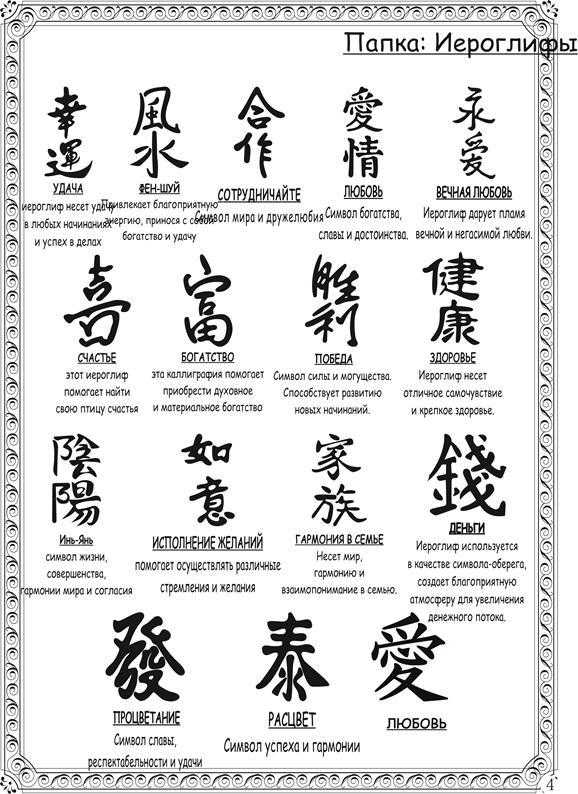 Папка: Иероглифы
幸運
УДАЧА
иероглиф несет удачу
в любых начинаниях
и успех в делах
風水
ФЕН-ШУЙ
Привлекает благоприятную
энергию, принося с собой
богатство и удачу
合作
СОТРУДНИЧАЙТЕ
Символ мира и дружелюбия
愛情
ЛЮБОВЬ
Символ богатства,
славы и достоинства.
永愛
ВЕЧНАЯ ЛЮБОВЬ
Иероглиф дарует пламя
вечной и негасимой любви.
喜
СЧАСТЬЕ
этот иероглиф
помогает найти
свою птицу счастья
富
БОГАТСТВО
эта каллиграфия помогает
приобрести духовное
и материальное богатство
勝利
ПОБЕДА
Символ силы и могущества.
Способствует развитию
новых начинаний.
健康
ЗДОРОВЬЕ
Иероглиф несет
отличное самочувствие
и крепкое здоровье.
陰陽
Инь-Янь
символ жизни,
совершенства,
гармонии мира и согласия
如意
ИСПОЛНЕНИЕ ЖЕЛАНИЙ
помогает осуществлять различные
стремления и желания
家族
ГАРМОНИЯ В СЕМЬЕ
Несет мир,
гармонию и
взаимопонимание в семью.
錢
ДЕНЬГИ
Иероглиф используется
в качестве символа-оберега,
создает благоприятную
атмосферу для увеличения
денежного потока.
發
ПРОЦВЕТАНИЕ
Символ славы,
респектабельности и удачи
泰
РАСЦВЕТ
Символ успеха и гармонии
愛
ЛЮБОВЬ
4